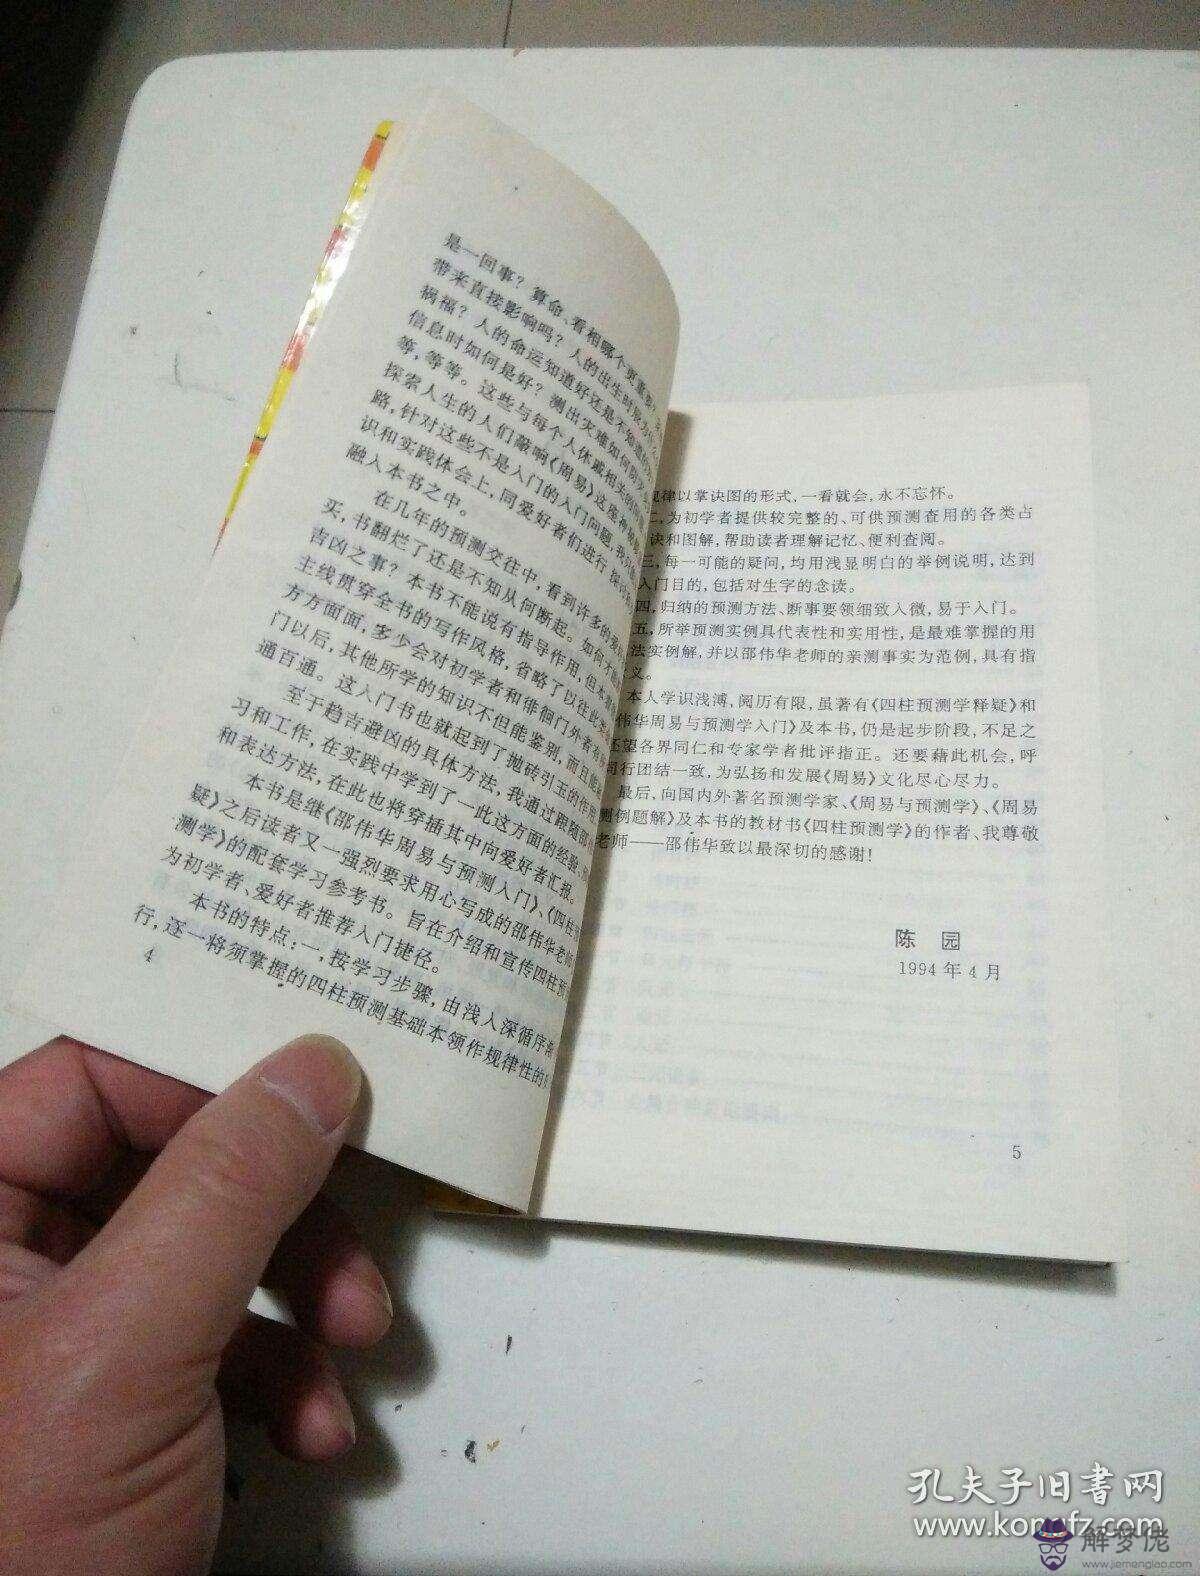 是一回事？算命、看相哪个更重要？
带来直接影响吗？人的出生时辰为什么
祸福？人的命运知道好还是不知道的
信息时如何是好？测出灾难如何防
等，等等。这些与每个人休戚相关的问题
探索人生的人们敲响《周易》这座神
路，针对这些不是入门的入门问题，我
识和实践体会上，同爱好者们进行探讨
融入本书之中。
在几年的预测交往中，看到许多的
买，书翻烂了还是不知从何断起。如何
吉凶之事？本书不能说有指导作用，但本
主线贯穿全书的写作风格，省略了以往此类
方方面面，多少会对初学者和徘徊门外者
门以后，其他所学的知识不但能鉴别，而且能
通百通。这入门书也就起到了抛砖引玉的作用
至于趋吉避凶的具体方法，我通过跟随邵
习和工作，在实践中学到了一此这方面的经验
和表达方法，在此也将穿插其中向爱好者汇报。
本书是继《邵伟华周易与预测入门》、《四柱
疑》之后读者又一强烈要求用心写成的邵伟华老师
测学》的配套学习参考书。旨在介绍和宣传四柱预
为初学者、爱好者推荐入门捷径。
本书的特点：一，按学习步骤，由浅入深循序
行，逐一将须掌握的四柱预测基础本领作规律性的
4
规律以掌诀图的形式，一看就会，永不忘怀。
二，为初学者提供较完整的、可供预测查用的各类占
诀和图解，帮助读者理解记忆、便利查阅。
三，每一可能的疑问，均用浅显明白的举例说明，达到
入门目的，包括对生字的念读。
四，归纳的预测方法、断事要领细致入微，易于入门。
五，所举预测实例具代表性和实用性，是最难掌握的用
法实例解，并以邵伟华老师的亲测事实为范例，具有指
义。
本人学识浅溥，阅历有限，虽著有《四柱预测学释疑》和
伟华周易与预测学入门》及本书，仍是起步阶段，不足之
还望各界同仁和专家学者批评指正。还要藉此机会，呼
同行团结一致，为弘扬和发展《周易》文化尽心尽力。
最后，向国内外著名预测学家、《周易与预测学》、《周易
测例题解》及本书的教材书《四柱预测学》的作者、我尊敬
老师——邵伟华致以最深切的感谢！
陈 园
1994年4月
5
孔夫子旧书网
www.kongfz.com
解梦佬
www.jiemenglao.com